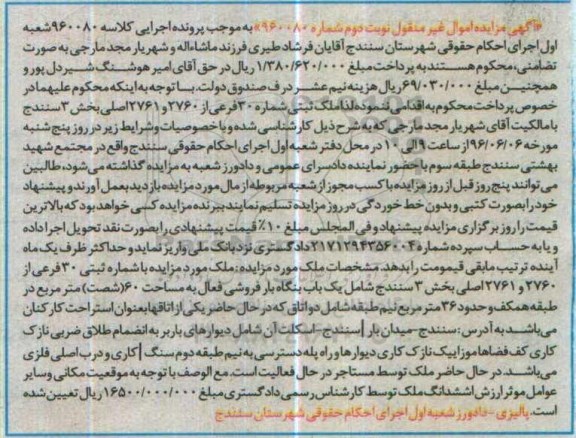 «آگهی مزایده اموال غیر منقول نوبت دوم شماره ۹۶۰۰۸۰» به موجب پرونده اجرایی کلاسه ۹۶۰۰۸۰ شعبه
اول اجرای احکام حقوقی شهرستان سنندج آقایان فرشاد طیری فرزند ماشاءاله و شهریار مجد مارجی به صورت
تضامنی، محکوم هستند به پرداخت مبلغ ۱/۳۸۰/۶۲۰/۰۰۰ ریال در حق آقای امیر هوشنگ شیردل پور و
همچنین مبلغ ۶۹/۰۳۰/۰۰۰ ریال هزینه نیم عشر در ف صندوق دولت. با توجه به اینکه محکوم علیهما در
خصوص پرداخت محکوم به اقدامی ننموده لذا ملک ثبتی شماره ۳۰ فرعی از ۲۷۶۰ و ۲۷۶۱ اصلی بخش ۳ سنندج
با مالکیت آقای شهریار مجد مارجی که به شرح ذیل کارشناسی شده و با خصوصیات و شرایط زیر در روز پنج شنبه
مورخه ۹۶/۰۶/۰۶ از ساعت ۹ الی ۱۰ در محل دفتر شعبه اول اجرای احکام حقوقی سنندج واقع در مجتمع شهید
بهشتی سنندج طبقه سوم با حضور نماینده دادسرای عمومی و دادورز شعبه به مزایده گذاشته می‌شود، طالبین
می‌توانند پنج روز قبل از روز مزایده با کسب مجوز از شعبه مربوطه از مال مورد مزایده بازدید بعمل آورند و پیشنهاد
خود را بصورت کتبی و بدون خط خوردگی در روز مزایده تسلیم نمایند برنده مزایده کسی خواهد بود که بالاترین
قیمت را روز برگزاری مزایده پیشنهاد و فی المجلس مبلغ ۱۰٪ قیمت پیشنهادی را بصورت نقد تحویل اجرا داده
و یا به حساب سپرده شماره ۲۱۷۱۲۹۴۳۵۶۰۰۴ دادگستری نزد بانک ملی واریز نماید و حداکثر ظرف یک ماه
آینده ترتیب مابقی قیمومت را بدهد. مشخصات ملک مورد مزایده: ملک مورد مزایده با شماره ثبتی ۳۰ فرعی از
۲۷۶۰ و ۲۷۶۱ اصلی بخش ۳ سنندج شامل یک باب بنگاه بار فروشی فعال به مساحت ۶۰ (شصت) متر مربع در
طبقه همکف و حدود ۳۶ متر مربع نیم طبقه شامل دو اتاق که در حال حاضر یکی از اتاقها بعنوان استراحت کارکنان
می‌باشد به آدرس: سنندج-میدان بار | سنندج-اسکلت آن شامل دیوارهای باربر به انضمام طلاق ضربی نازک
کاری کف فضاها موزاییک نازک کاری دیوارها و راه پله دسترسی به نیم طبقه دوم سنگ | کاری و درب اصلی فلزی
می‌باشد. در حال حاضر ملک توسط مستاجر در حال فعالیت است. مع الوصف با توجه به موقعیت مکانی و سایر
عوامل موثر ارزش اششدانگ ملک توسط کارشناس رسمی دادگستری مبلغ ۱۶۵۰۰/۰۰۰/۰۰۰ ریال تعیین شده
است. پالیزی - دادورز شعبه اول اجرای احکام حقوقی شهرستان سنندج